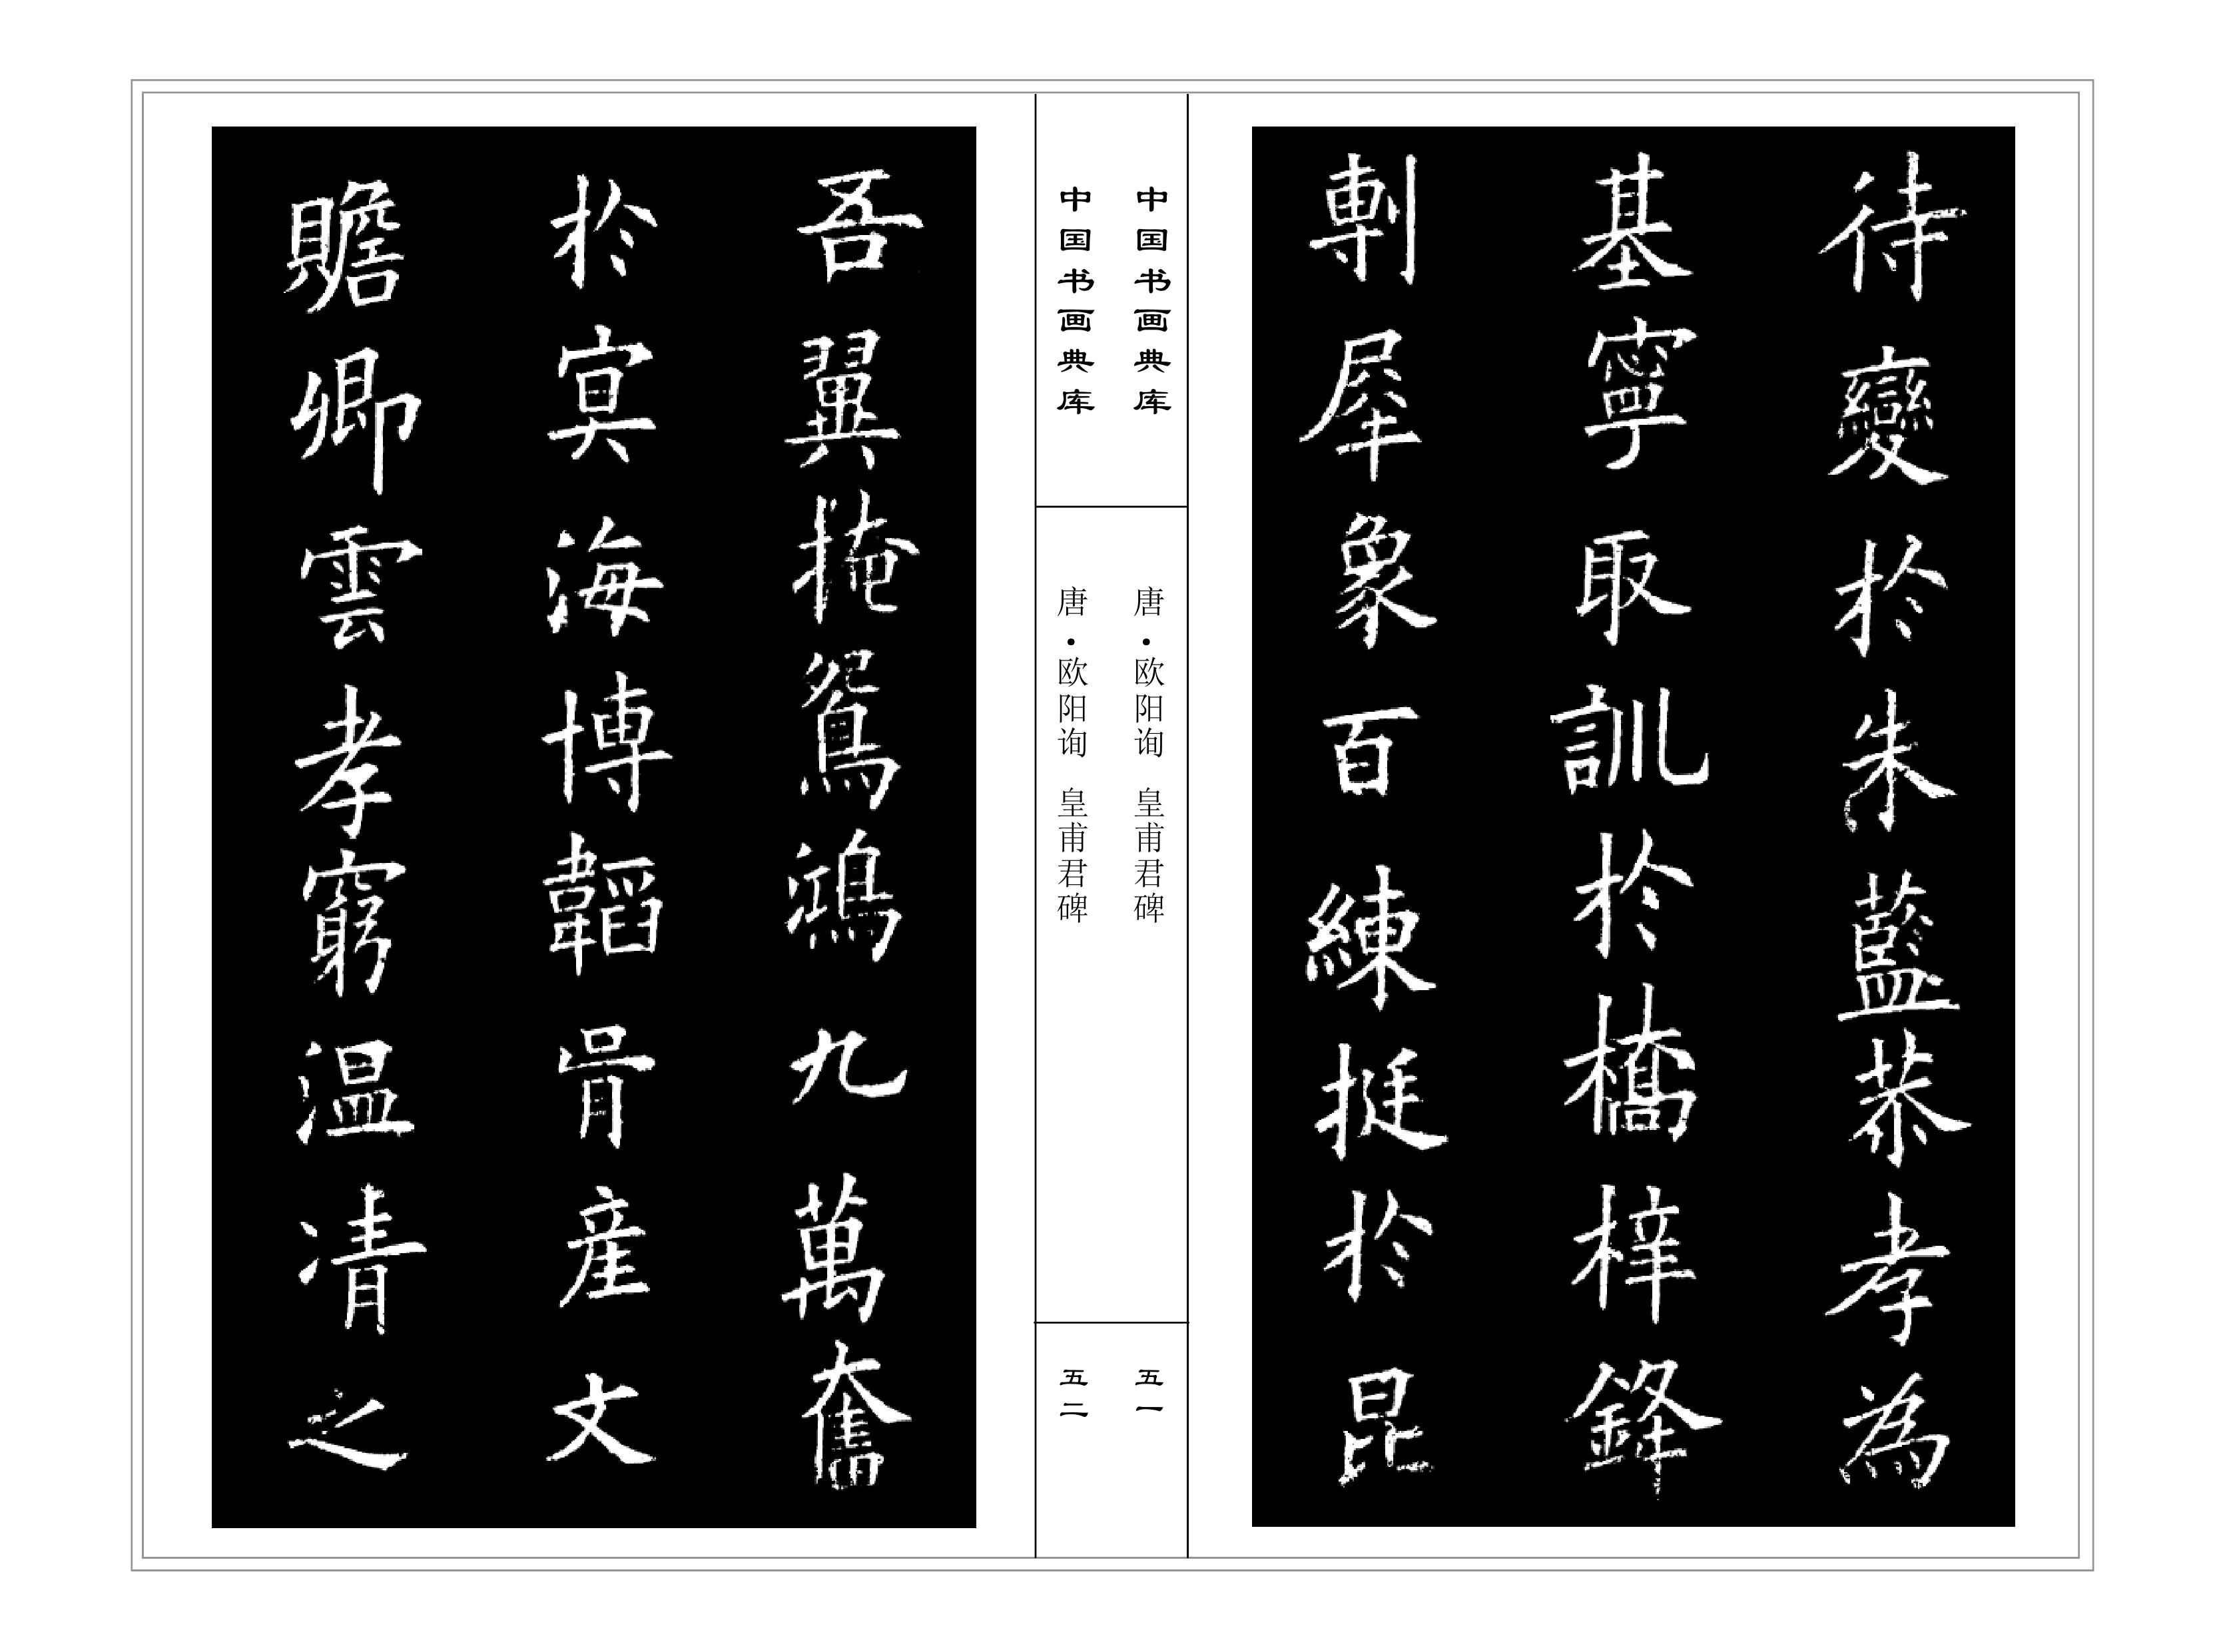 待變於朱藍恭孝為
基寧取訓於橋梓鋒
剸犀象百練挺於昆
中国书画典库
唐·欧阳询 皇甫君碑
五一
中国书画典库
唐·欧阳询 皇甫君碑
五二
吾翼掩鴛鴻九萬奮
於㝠海博韜胄產文
贍卿雲孝窮温凊之